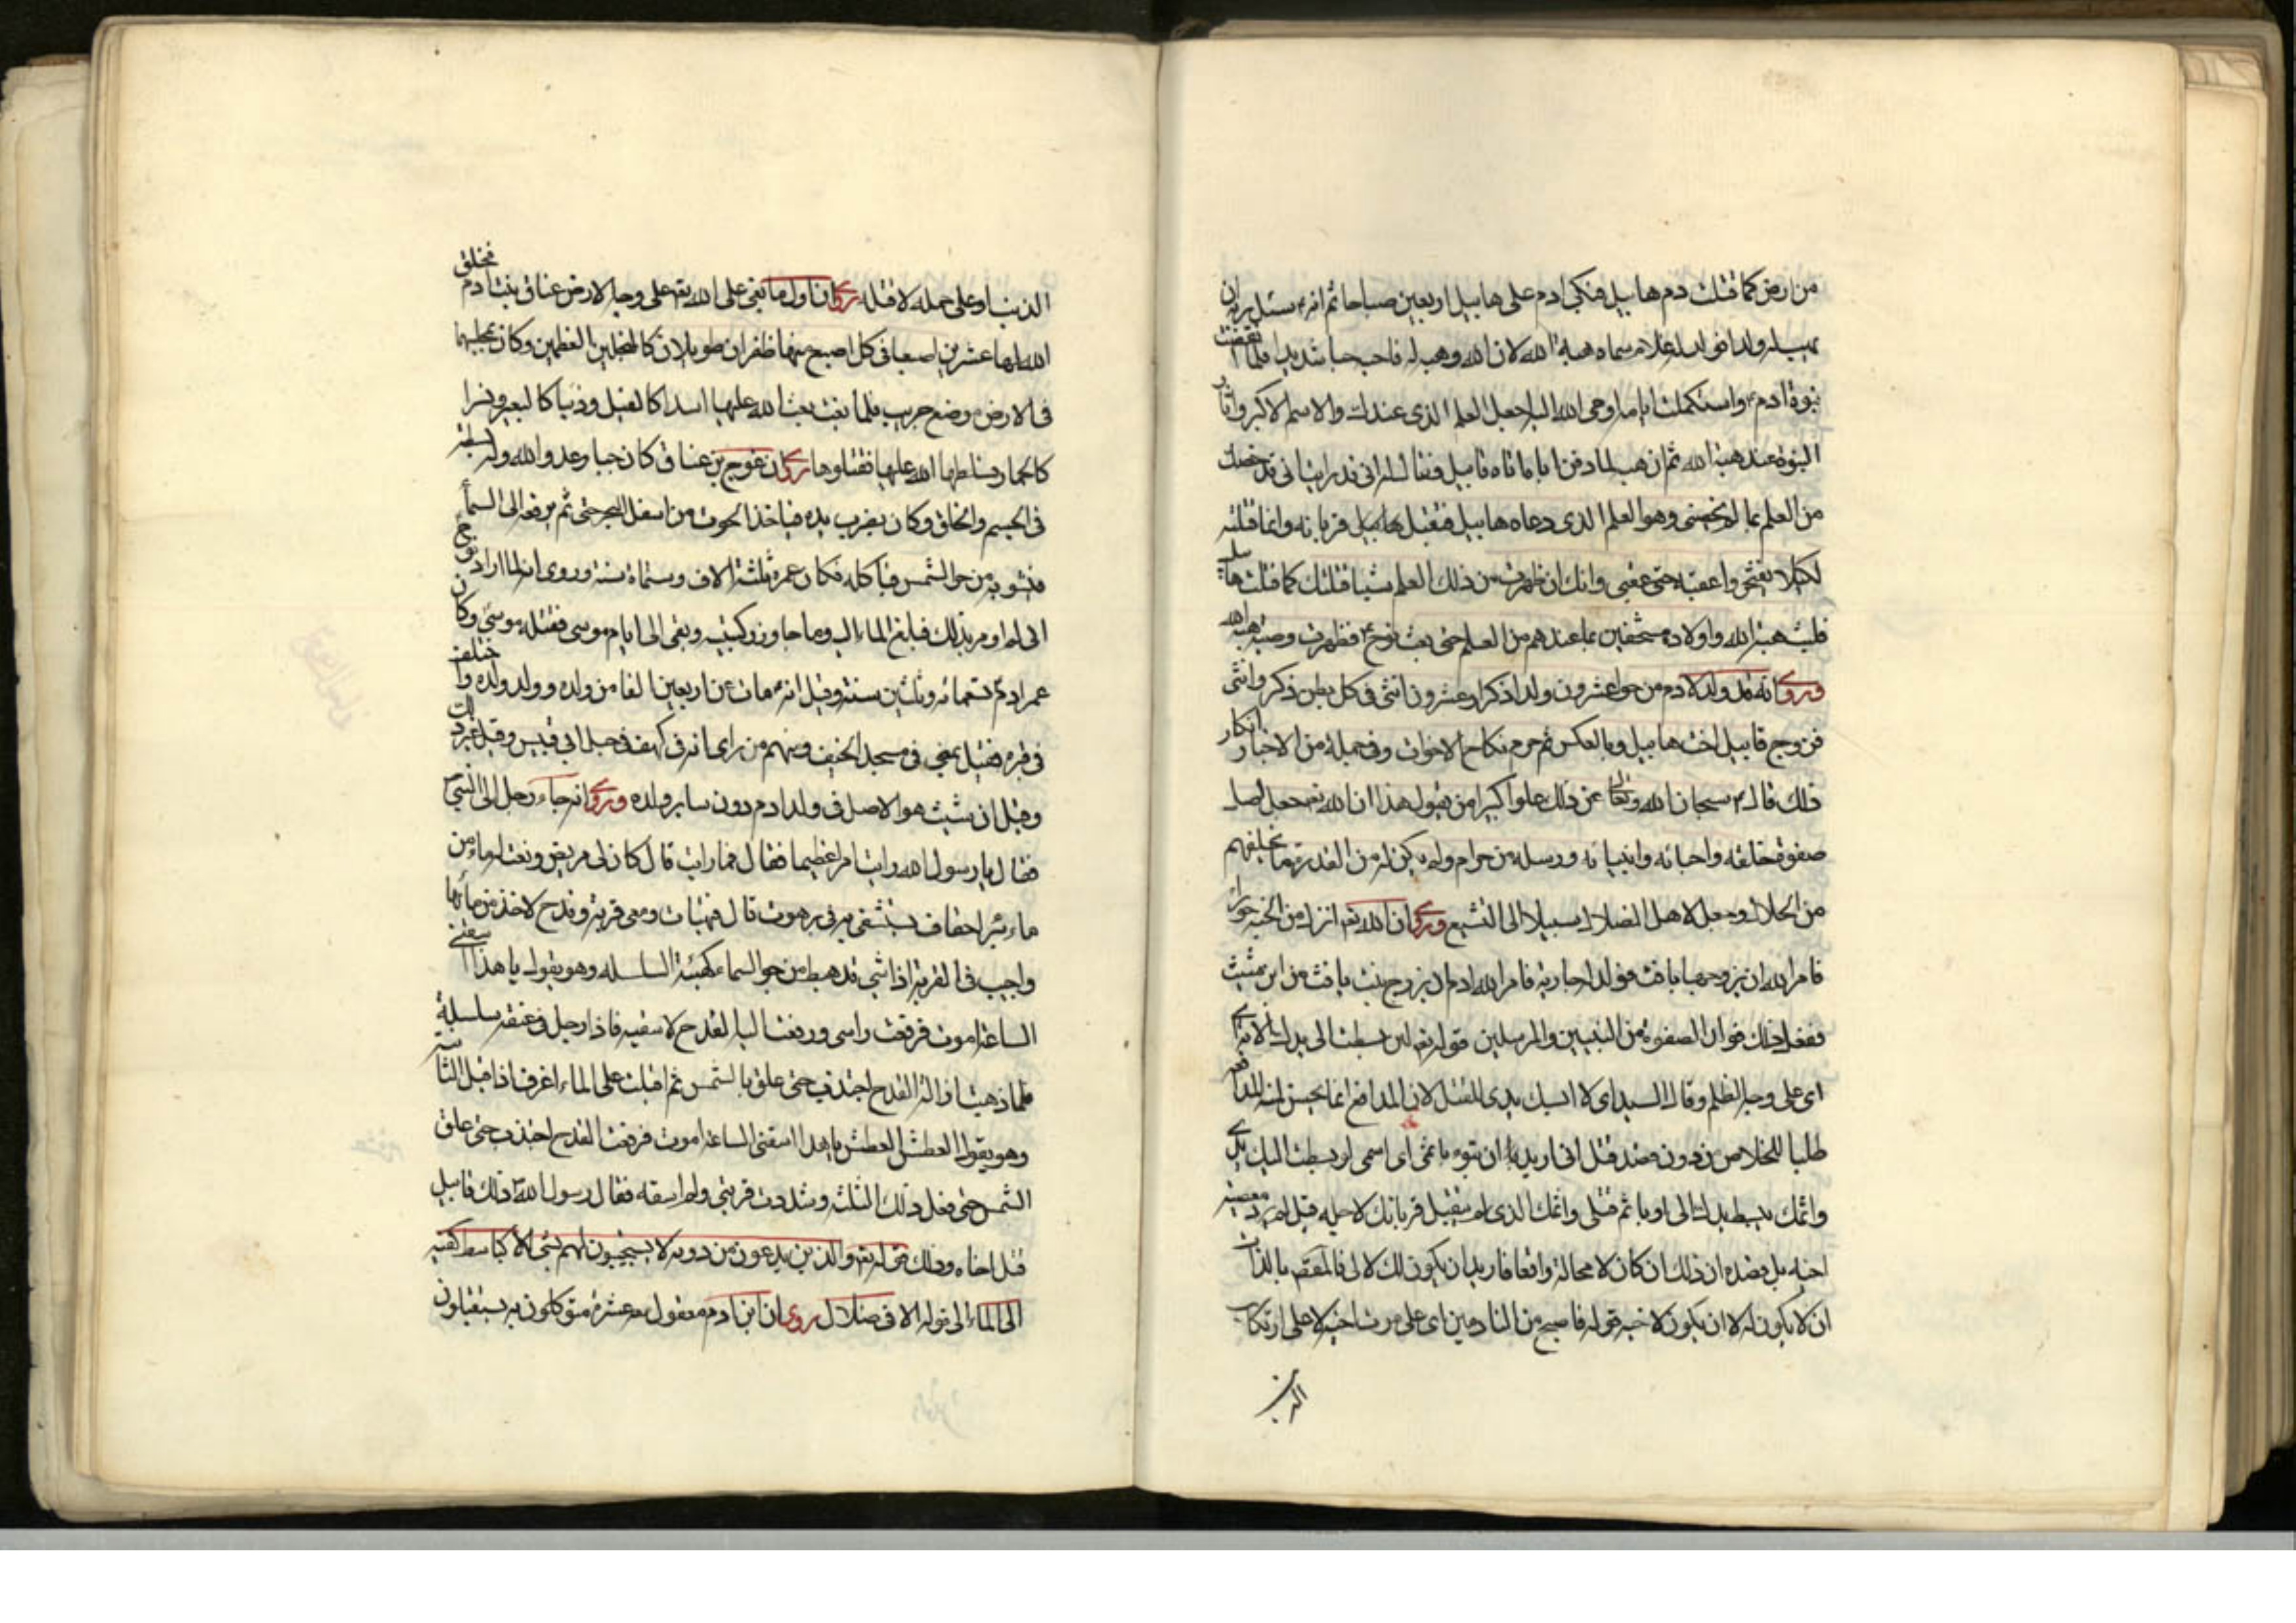 من ارض كما قتلت دم هابيل فبكى ادم على هابيل اربعين صباحا ثم انه سئل ربه ان
يهب له ولدا فولد له غلام سماه هبة الله لان الله وهبه له فاحبه حبا شديدا فلما انقضت
نبوة ادم واستكملت ايامه اوحى الله اليه اجعل العلم الذى عندك والاسم الاكبر واثار
النبوة عند هبة الله ثم ان هبة لما دفن اباه اتاه قابيل فقال له انى قد رايت ابى قد خصك
من العلم بما لم يخصنى وهو العلم الذى دعا به هابيل فتقبل قربانه وانما قتلته
لكيلا يفتخر واعقبه على عقبى وانك ان ظهرت من ذلك العلم شيئا قتلتك كما قتلت هابيل
فلبث هبة الله واولاده مستخفين بما عندهم من العلم حتى بعث نوح ع فظهرت وصية هبة الله
وروى انه قد ولد لادم من حوا عشرون ولدا ذكرا وعشرون انثى فى كل بطن ذكر وانثى
فزوج قابيل اخت هابيل وبالعكس ثم حرم نكاح الاخوات وفى جملة من الاخبار انكار
ذلك قال ع سبحان الله وتعالى عن ذلك علوا كبيرا من يقول هذا ان الله تع جعل اصل
صفوة خلقه واحبائه وانبيائه ورسله من حرام ولم يكن له من القدرة ما يخلقهم
من الحلال وجعل لاهل الضلال سبيلا الى التشنيع وروى ان الله تع انزل من الجنة حوراء
فامر الله ان يزوجها يافث فولد جارية فامر الله ادم ان يزوج بنت يافث من ابن شيث
ففعل ذلك فولد الصفوة من النبيين والمرسلين قوله تع لئن بسطت الى يدك الاية
اى على وجه الظلم وقال السيد اى لا ابسط يدى للقتل لان المدافع انما يحسن منه المدافعة
طلبا للخلاص من دون قصد قتل انى اريد ان تبوء باثمى اى اسمى لو بسطت اليك يدى
واثمك ببسط يدك الى او باثم قتلى واثمك الذى لم يتقبل قربانك لاجله قيل لم يرد معصية
اخيه بل قصده ان ذلك ان كان لا محالة واقعا فاريد ان يكون لك لا لى فالمقصد بالذات
ان لا يكون له لا ان يكون لاخيه قوله فاصبح من النادمين اى على موت اخيه لا على ارتكاب
الذنب
الذنب او على حمله لا قتله روى ان اول ما بغى على الله تع على وجه الارض عناق بنت ادم فخلق
الله لها عشرين اصبعا فى كل اصبع منها ظفران طويلان كالمنجلين العظيمين وكان مجلسها
فى الارض وضع جريب فلما بغت بعث الله عليها اسدا كالفيل وذئبا كالبعير ونسرا
كالحمار وسلطها الله عليها فقتلوها روى ان عوج بن عناق كان جبارا عدوا لله وله بسطة
فى الجسم والخلق وكان يضرب يده فياخذ الحوت من اسفل البحر ثم يرفعه الى السماء
فيشويه من حر الشمس فياكله فكان عمره ثلثة الاف وستمائة سنة وروى انه لما اراد نوح
فبلغ الماء اليه وما جاوز ركبتيه وبقى الى ايام موسى فقتله موسى وكان
عمر ادم تسعمائه وثلثين سنة وقيل انه مات عن اربعين الفا من ولده وولد ولده واختلف
فى قبره فقيل بمنى فى مسجد الخيف ومنهم من راى انه فى كهف فى جبل ابى قبيس وقيل غير ذلك
وقيل ان شيث هو الاصل فى ولد ادم دون ساير ولده وروى انه جاء رجل الى النبى ص
فقال يا رسول الله رايت امرا عظيما فقال فما رايت قال كان لى مريض ونعت له ماء من
ماء بئر احقاف يستشفى به فى برهوت قال فتهيات ومعى قربة وقدح لاخذ من مائها
واصب فى القربة اذا شئ قد هبط من جو السماء كهيئة السلسله وهو يقول يا هذا اسقنى
الساعة اموت فرفعت راسى ورفعت اليه القدح لاسقيه فاذا رجل فى عنقه سلسلة
فلما ذهبت اناوله القدح اجتذب حتى علق بالشمس ثم اقبلت على الماء اغرف اذا اقبل الثانية
وهو يقول العطش العطش يا هذا اسقنى الساعة اموت فرفعت القدح اجتذب حتى علق
الشمس حتى فعل ذلك الثلثة وشددت قربتى ولم اسقه فقال رسول الله ص ذلك قابيل
قتل اخاه وذلك قوله تع والذين يدعون من دونه لا يستجيبون لهم بشئ الا كباسط كفيه
الى الماء الى قوله الا فى ضلال روى ان ابن ادم معقول معه عشرة موكلون به يستقبلون